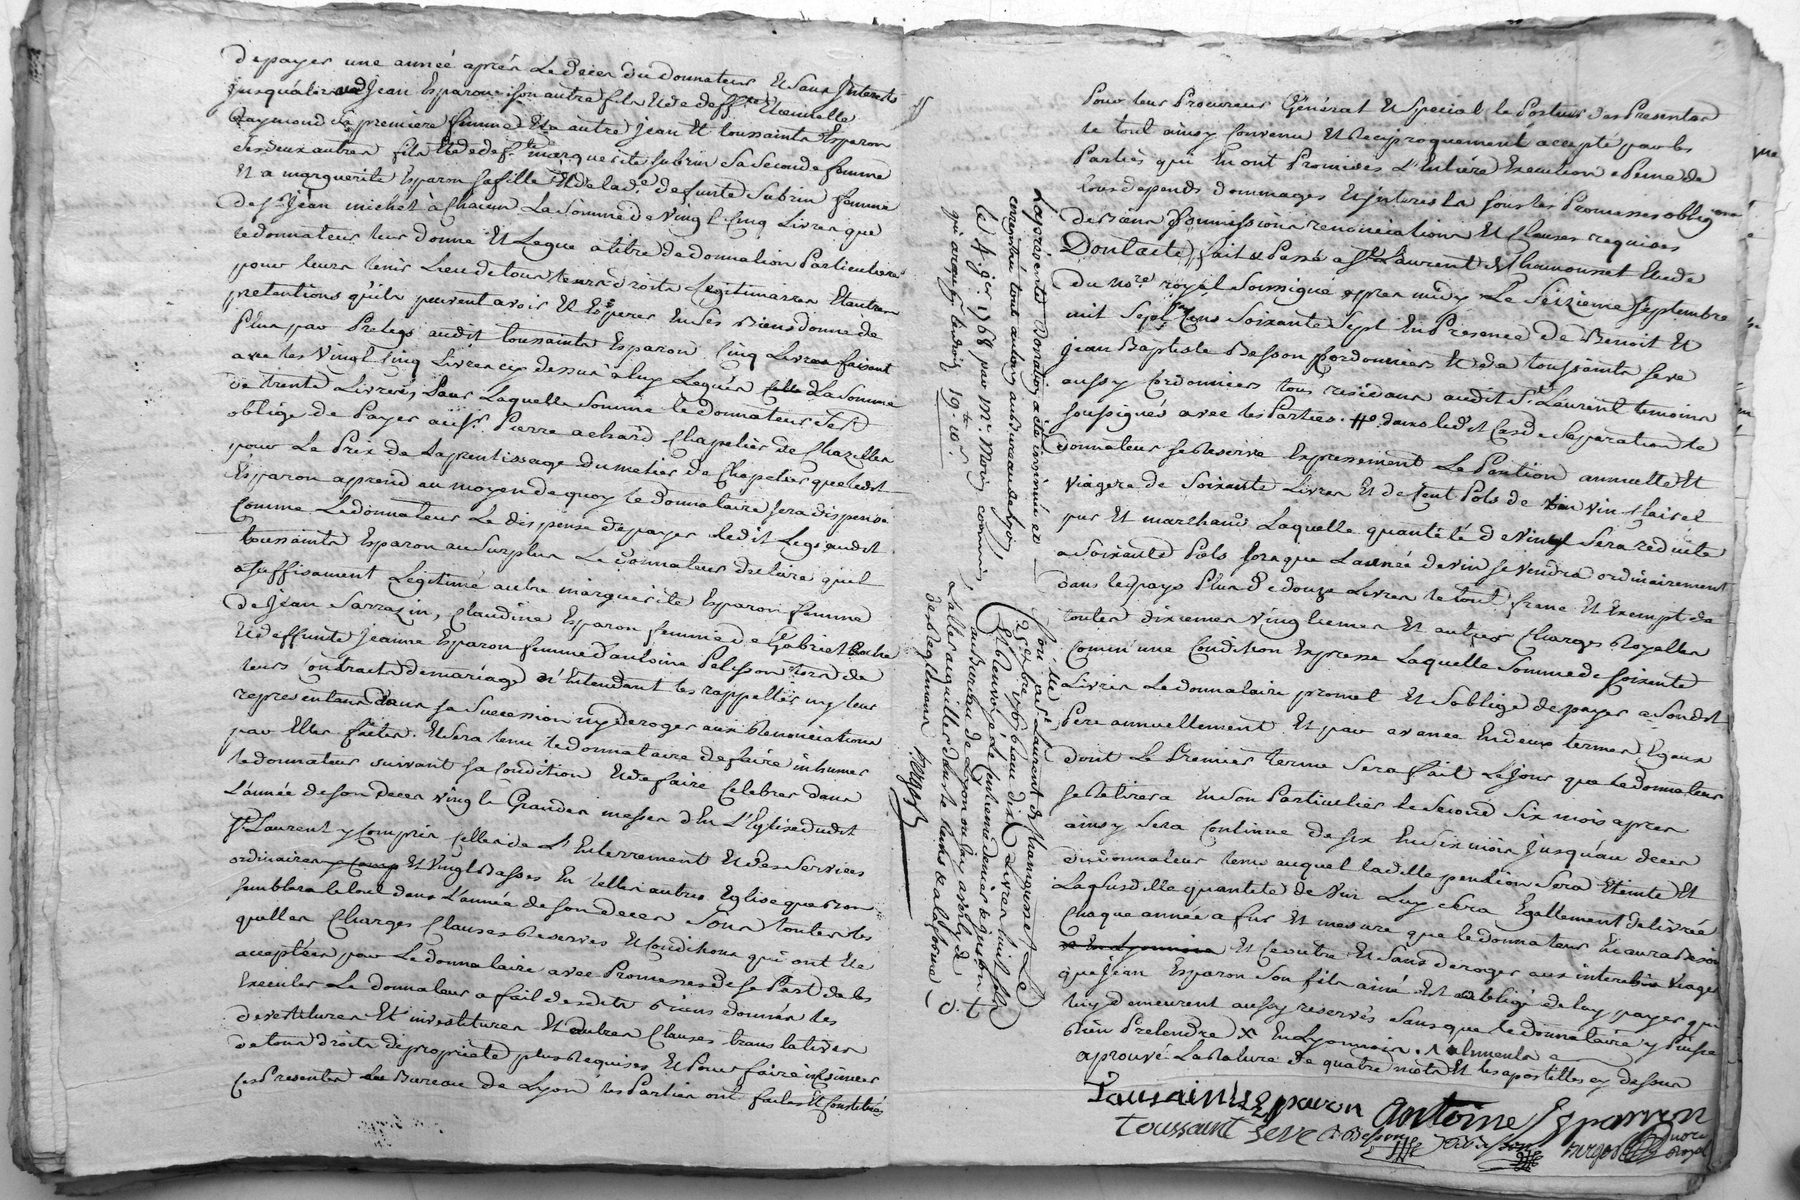 de payer une année après Le Decès du Donnateur Et Sans Interests
jusqu'alors a Jean Esparon son autre fils Et de deff.te Benoitte
Raymond sa première femme Et a autre Jean Et toussaints Esparon
ses deux autres fils Et de def.te marguerite Subrin Sa seconde femme
Et a marguerite Esparon sa fille Et de lad.e defunte Subrin femme
de s.r Jean michel à Chacun La Somme de Vingt Cinq Livres que
le donnateur leur donne Et Legue a titre de donnation Particuliere
pour leurs tenir Lieu de tous leurs droits Legitimaires Et autres
pretentions qu'ils peuvent avoir Et Esperer En Ses Biens donne de
Plus par Prelegs audit toussaints Esparon Cinq Livres faisant
avec les Vingt Cinq Livres cy dessus à luy Legués La Somme
de trente Livres, Pour Laquelle Somme le donnateur s'est
obligé de Payer au s.r Pierre achard Chapelier de Chazelles
pour Le Prix de L'aprentissage du metier de Chapelier que ledit
Esparon aprend au moyen de quoy le donnataire sera dispensé
Comme Le donnateur Le dispense de payer ledit Legs audit
toussaints Esparon au Surplus Le donnateur declare qu'il
a suffisament Legitimé autre marguerite Esparon femme
de Jean Sarrazin, Claudine Esparon femme de Gabriel
Et deffunte Jeanne Esparon femme d'antoine Pelisson lors de
leurs Contracts de mariage n'Entendant les rappeller ny leur
representans dans sa Succession ny deroger aux Renonciations
par Elles faites. Et sera tenu le donnataire de faire inhumer
le donnateur suivant sa Condition Et de faire Celebrer dans
L'année de son Deces vingt Grandes messes d En L'Eglise dudit
S.t Laurent y Compris Celles de L'Enterrement Et des Services
ordinaires Et Vingt Basses En telles autres Eglise que Bon
semblera le tout dans L'année de son deces Sous toutes les
quelles Charges Clauses Reserves Et Conditions qui ont Ete
acceptées par Le donnataire avec Promesses de Sa Part de les
Executer Le donnateur a fait desdits Biens donnés les
devestitures Et investitures Et autres Clauses translatives
de tous droits de propriété plus Requises Et Pour faire insinuer
Ces Presentes Au Bureau de Lyon les Parties ont faites Et Constitués
La presente Donation a été insinuée ex
enregistrée tout au long au bureau de Lyon
le 4 j.er 1768 par M.r Morin commis
qui a reçu 19.#
Con.lé a S.t Laurent de Chamousset Le
25 7bre 1767 dix Livres huit sols
Et Renvoyé Le Centieme denier
au bureau de Lyon ou Il y aura lieu de
dans le tems de la forme
des Reglemens
Pour leur Procureur Général Et Special le Porteur des Presentes
le tout ainsy Convenu Et Reciproquement accepté par les
Parties qui En ont Promises L'Entière Execution a Peine de
tous depends dommages Et Interests sous les Promesses oblig.ons
de Biens Soumissions renonciations Et Clauses requises
Dont acte, fait & Passé a S.t Laurent de Chamousset Etude
du no.re royal Soussigné apres midy Le Seizieme Septembre
mil Sept Cens Soixante Sept En Presence de Benoit Et
Jean Baptiste Besson Cordonniers Et de toussaints Seve
aussy Cordonnier tous residans audit S.t Laurent temoins
soussignés avec les Parties. # dans ledit Cas de Separation le
donnateur se Reserve Expressement La Pention annuelle Et
viagere de Soixante Livres Et de Cent Pots de vin Clairet
pur Et marchand Laquelle quantité de Vin Sera reduite
a Soixante Pots lorsque L'année de vin se Vendra ordinairement
dans le pays Plus de douze Livres le tout franc Et Exempt de
toutes dixiemes vingtiemes Et autres Charges Royalles
Comm'une Condition Expresse Laquelle Somme de soixante
Livres Le donnataire promet Et S'oblige de payer a Sondit
Pere annuellement Et par avance En deux termes Egaux
dont Le Premier terme Sera fait Le jour que le donnateur
se Retirera En Son Particulier le Second Six mois apres
ainsy Sera Continué de six En Six mois jusqu'au deces
du donnateur tems auquel ladite pention Sera Eteinte Et
La susditte quantité de Vin Luy Sera Egallement delivrée
Chaque année a fur Et mesure que le donnateur En aura Besoin
Et Ce outre Et Sans deroger aux interets Viager
que Jean Esparon Son fils ainé Est obligé de luy payer qui
luy demeurent aussy reservés Sans que le donnataire y Puisse
Rien Pretendre X En Lyonnois.
aprouvé La Rature de quatre mots Et les apostilles cy dessus
Tousaint Esparon Antoine Esparron
Toussaint Seve B Besson